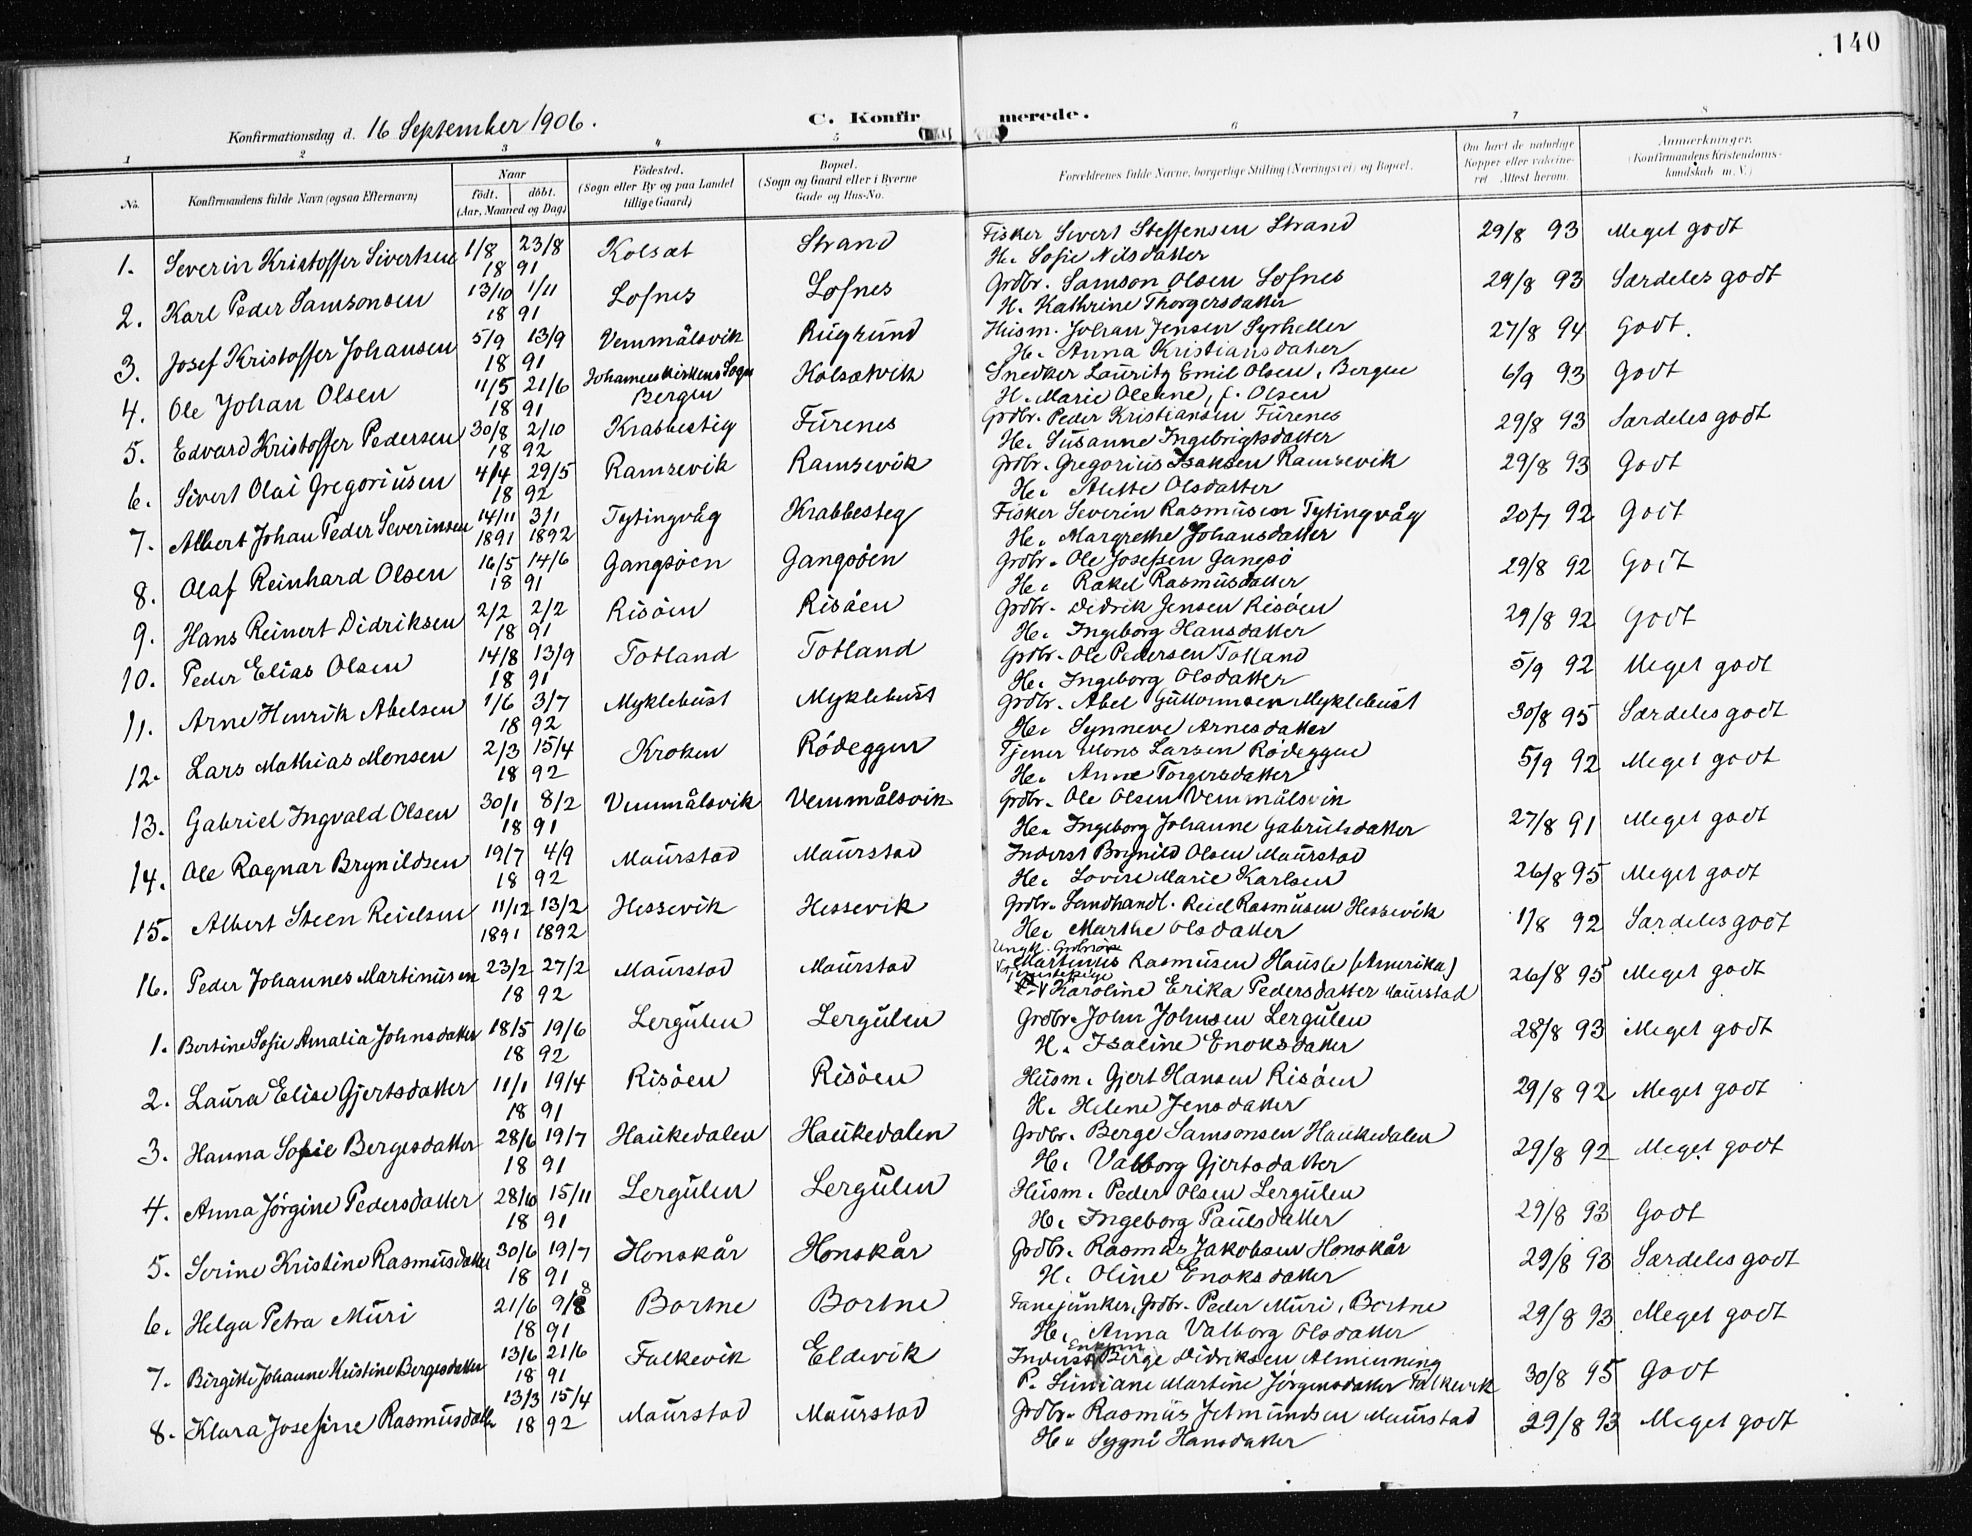 140
Konfirmationsdag d. 16 September 1906.
C. Konfirmerede.
1 2 3 4 5 6 7 8
No. Konfirmandens fulde Navn (ogsaa Efternavn) Naar født. døbt. (Aar, Maaned og Dag) Fødested. (Sogn eller By og paa Landet tillige Gaard) Bopæl. (Sogn og Gaard eller i Byerne Gade og Hus-No. Forældrenes fulde Navne, borgerlige Stilling (Næringsvei) og Bopæl. Om havt de naturlige Kopper eller vaccineret. Attest herom. Anmærkninger. (Konfirmandens Kristendomskundskab m. V.)
1. Severin Kristoffer Sivertsen 1/8 23/8 Kolsæt Strand Fisker Sivert Steffensen Strand 29/8 93 Meget godt
18 91 H. Sofie Nilsdatter
2. Karl Peder Samsonsen 13/10 1/11 Lofnes Lofnes Grdbr. Samson Olsen Lofnes 29/8 93 Særdeles godt
18 91 H. Kathrine Thorgersdatter
3. Josef Kristoffer Johansen 5/9 13/9 Vemmålsvik Rugsund Husm. Johan Jensen Syrheller 27/8 94 Godt.
18 91 H. Anna Kristiansdatter
4. Ole Johan Olsen 11/5 21/6 Johanneskirkens Sogn Bergen Kolsætvik Snedker Lauritz Emil Olsen, Bergen 6/9 93 Godt
18 91 H. Marie Olehne, f. Olsen
5. Edvard Kristoffer Pedersen 30/8 2/10 Krabbestig Furenes Grdbr. Peder Kristiansen Furenes 29/8 93 Særdeles godt
18 92 H. Susanne Ingebrigtsdatter
6. Sivert Olai Gregoriusen 4/4 29/5 Ramsevik Ramsevik Grdbr. Gregorius Isaksen Ramsevik 29/8 93 Godt
18 92 H. Alette Olsdatter
7. Albert Johan Peder Severinsen 14/11 3/1 Tytingvåg Krabbesteg Fisker Severin Rasmusen Tytingvåg 20/7 92 Godt
1891 1892 H. Margrethe Johansdatter
8. Olaf Reinhard Olsen 16/5 14/6 Gangsöen Gangsöen Grdbr. Ole Josefsen Gangsö 29/8 92 Godt
18 91 H. Rakel Rasmusdatter
9. Hans Reinert Didriksen 2/2 2/2 Risöen Risöen Grdbr. Didrik Jensen Risöen 29/8 92 Godt
18 91 H. Ingeborg Hansdatter
10. Peder Elias Olsen 14/8 13/9 Totland Totland Grdbr. Ole Pedersen Totland 5/9 92 Meget godt
18 91 H. Ingeborg Olsdatter
11. Arne Henrik Abelsen 1/6 3/7 Myklebust Myklebust Grdbr. Abel Guttormsen Myklebust 30/8 95 Særdeles godt
18 92 H. Synneve Arnesdatter
12. Lars Mathias Monsen 2/3 15/4 Kroken Rödeggen Tjener Mons Larsen Rödeggen 5/9 92 Meget godt
18 92 H. Anne Torgersdatter
13. Gabriel Ingvald Olsen 30/1 8/2 Vemmålsvik Vemmålsvik Grdbr. Ole Olsen Vemmålsvik 27/8 91 Meget godt
18 91 H. Ingeborg Johanne Gabrielsdatter
14. Ole Ragnar Brynildsen 19/7 4/9 Maurstad Maurstad Inderst Brynild Olsen Maurstad 26/8 95 Meget godt
18 92 H. Lovise Marie Karlsen
15. Albert Steen Reielsen 11/12 13/2 Hessevik Hessevik Grdbr. Landhandl. Reiel Rasmusen Hessevik 1/8 92 Særdeles godt
1891 1892 H. Marthe Olsdatter
16. Peder Johannes Martinusen 23/2 27/2 Maurstad Maurstad Ungk. Grdbrsøn Martinus Rasmusen Hausle (Amerika) 26/8 95 Meget godt
18 92 Tjenestepige Karoline Erika Pedersdatter Maurstad
1. Bertine Sofie Amalia Johnsdatter 18/5 19/6 Lergulen Lergulen Grdbr. John Johnsen Lergulen 28/8 93 Meget godt
18 92 H. Isaline Enoksdatter
2. Laura Elise Gjertsdatter 11/1 19/4 Risöen Risöen Husm. Gjert Hansen Risöen 29/8 92 Meget godt
18 91 H. Helene Jensdatter
3. Hanna Sofie Bergesdatter 28/6 19/7 Haukedalen Haukedalen Grdbr. Berge Samsonsen Haukedalen 29/8 92 Meget godt
18 91 H. Valborg Gjertsdatter
4. Anna Jörgine Pedersdatter 28/10 15/11 Lergulen Lergulen Husm. Peder Olsen Lergulen 29/8 93 Godt
18 91 H. Ingeborg Paulsdatter
5. Serine Kristine Rasmusdatter 30/6 19/7 Honskår Honskår Grdbr. Rasmus Jakobsen Honskår 29/8 93 Særdeles godt
18 91 H. Oline Enoksdatter
6. Helga Petra Muri 21/6 9/8 8 Bortne Bortne Fanejunker, Grdbr. Peder Muri, Bortne 29/8 93 Meget godt
18 91 H. Anna Valborg Olsdatter
7. Birgitte Johanne Kristine Bergesdatter 13/6 21/6 Falkevik Eldevik Inderst Enkem. Berge Didriksen Almenning 30/8 95 Godt
18 91 P. Liniane Martine Jörgensdatter Falkevik
8. Klara Josefine Rasmusdatter 13/3 15/4 Maurstad Maurstad Grdbr. Rasmus Jetmundsen Maurstad 29/8 93 Meget godt
18 92 H. Sygni Hansdatter